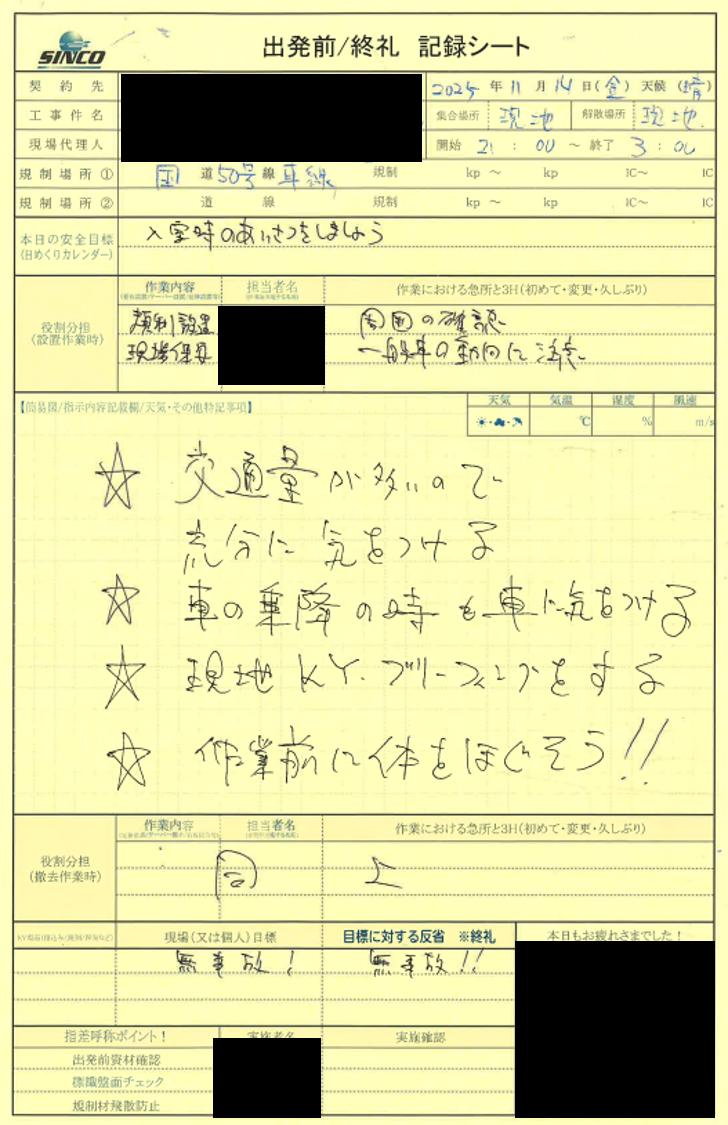 SINCO
出発前/終礼 記録シート
契約先
2025年11月14日(金) 天候(晴)
工事件名
集合場所 現地 解散場所 現地
現場代理人
開始 21:00 ~ 終了 3:00
規制場所① 国道50号線 規制 kp ~ kp IC~ IC
規制場所② 道 線 規制 kp ~ kp IC~ IC
本日の安全目標
(日めくりカレンダー)
入室時のあいさつをしましょう
役割分担
(設置作業時)
作業内容 担当者名 作業における急所と3H(初めて・変更・久しぶり)
規制設置 周囲の確認
現場保安 一般車の動向に注意
【簡易図/指示内容記載欄/天気・その他特記事項】
天気 気温 湿度 風速
℃ % m/s
☆ 交通量が多いので
充分に気をつける
☆ 車の乗降の時も車に気をつける
☆ 現地KY・ブリーフィングをする
☆ 作業前に体をほぐそう!!
役割分担
(撤去作業時)
作業内容 担当者名 作業における急所と3H(初めて・変更・久しぶり)
同上
現場(又は個人)目標 目標に対する反省 ※終礼 本日もお疲れさまでした!
無事故! 無事故!!
指差呼称ポイント! 実施者名 実施確認
出発前資材確認
標識盤面チェック
規制材飛散防止